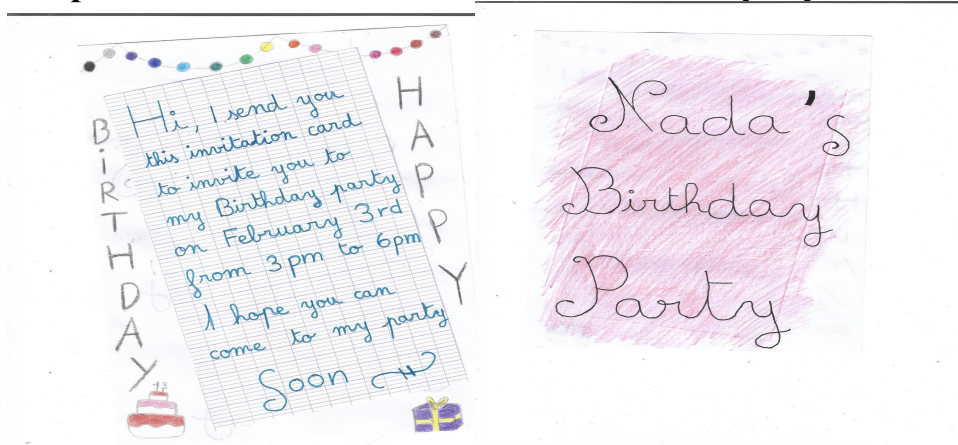 BiRTHDAY
Hi, I send you
this invitation card
to invite you to
my Birthday party
on February 3rd
from 3 pm to 6pm
I hope you can
come to my party
Soon
HAPPY
13
Nada's
Birthday
Party